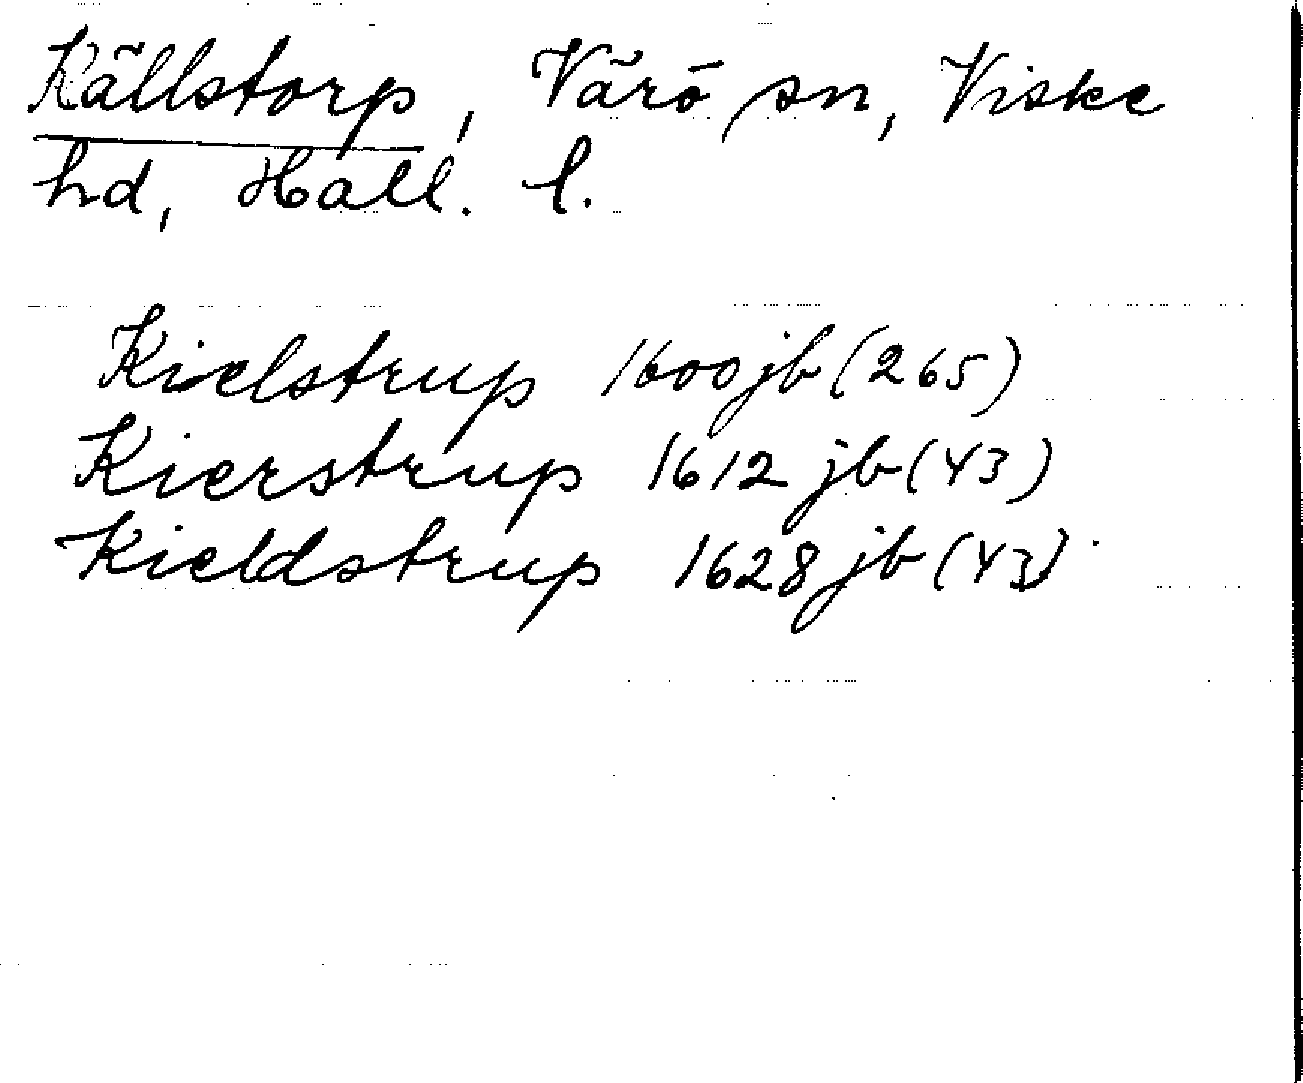 Källstorp, Värö sn, Viske
hd, Hall. l.
Kielstrup 1600 jb (265)
Kierstrup 1612 jb (43)
Kieldstrup 1628 jb (43).